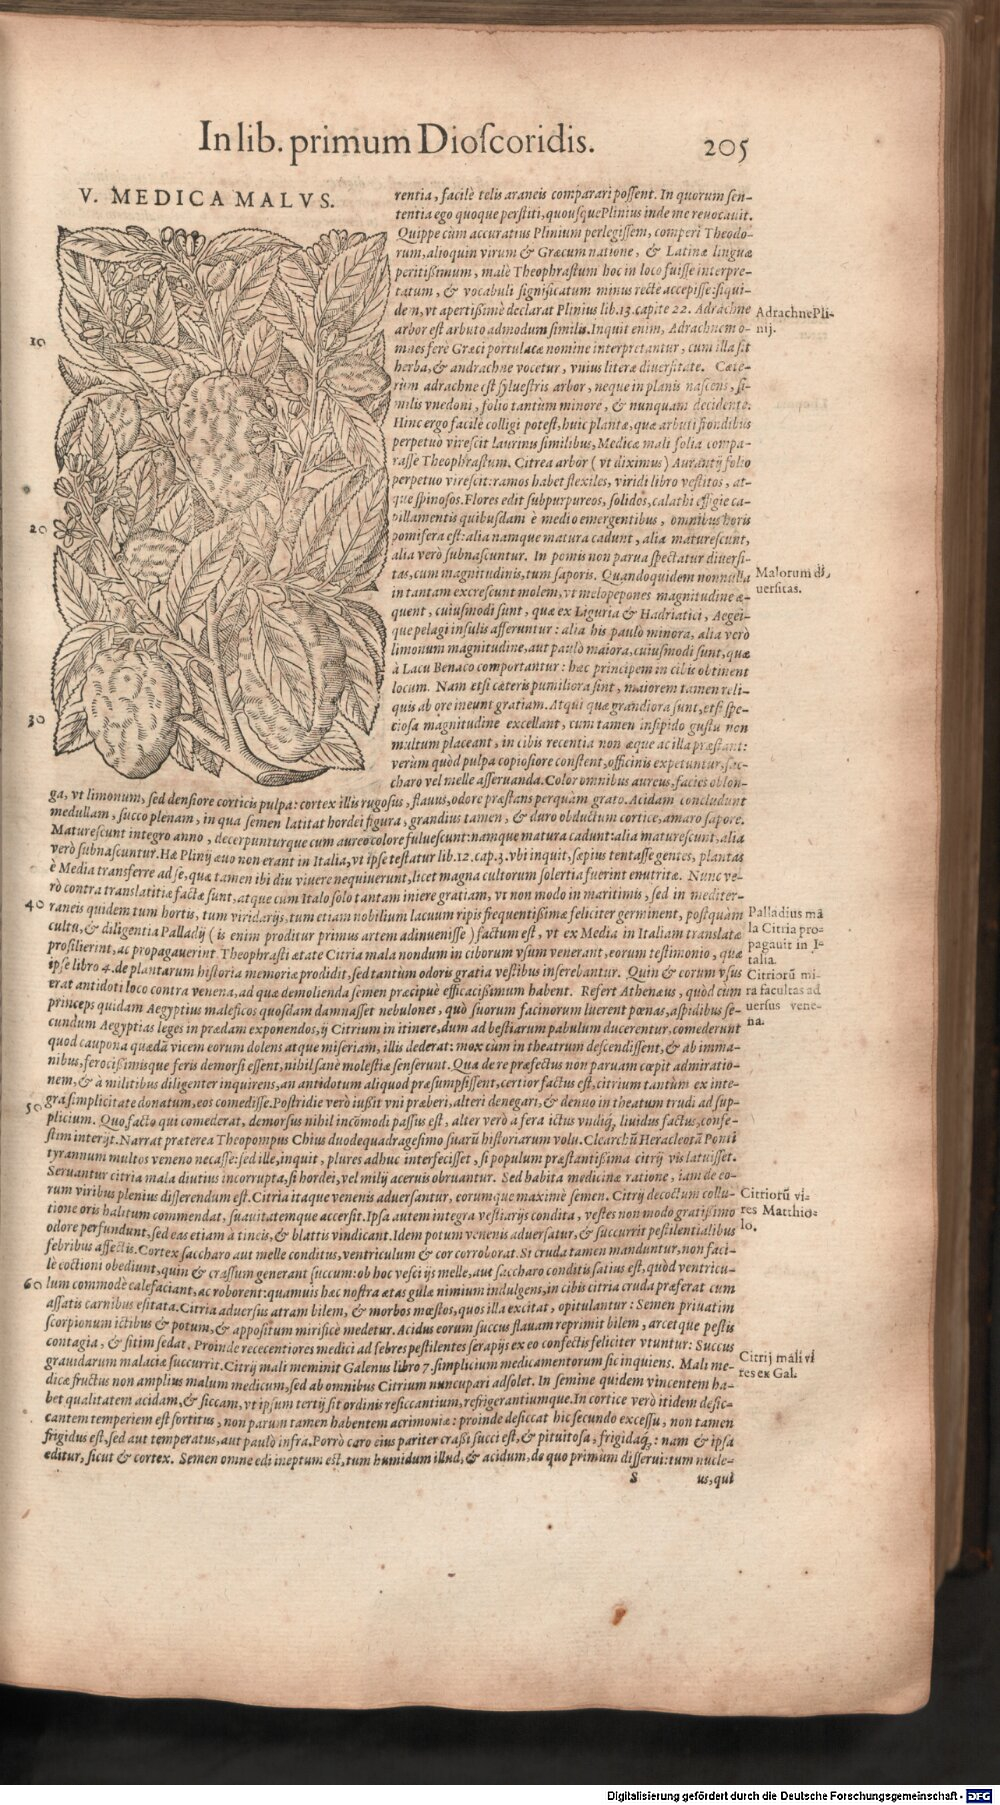 In lib. primum Dioſcoridis. 205
V. MEDICA MALVS.
rentia, facilè telis araneis comparari poſſent. In quorum ſen-
tentia ego quoque perſtiti, quouſque Plinius inde me reuocauit.
Quippe cùm accuratius Plinium perlegiſſem, comperi Theodo-
rum, alioquin virum & Græcum natione, & Latinæ linguæ
peritißimum, malè Theophraſtum hoc in loco fuiſſe interpre-
tatum, & vocabuli ſignificatum minus recte accepiſſe: ſiqui-
dem, vt apertißimè declarat Plinius lib. 13. capite 22. Adrachne
arbor eſt arbuto admodum ſimilis. Inquit enim, Adrachnem o-
mnes ferè Græci portulacæ nomine interpretantur, cum illa ſit
herba, & andrachne vocetur, vnius literæ diuerſitate. Cæte-
rum adrachne eſt ſylueſtris arbor, neque in planis naſcens, ſi-
milis vnedoni, folio tantùm minore, & nunquam decidente.
Hinc ergo facilè colligi poteſt, huic plantæ, quæ arbuti frondibus
perpetuo vireſcit laurinis ſimilibus, Medicæ mali folia compa-
raſſe Theophraſtum. Citrea arbor (vt diximus) Aurantij folio
perpetuo vireſcit: ramos habet flexiles, viridi libro veſtitos, at-
que ſpinoſos. Flores edit ſubpurpureos, ſolidos, calathi effigie ca-
pillamentis quibuſdam è medio emergentibus, omnibus horis
pomifera eſt: alia namque matura cadunt, alia matureſcunt,
alia verò ſubnaſcuntur. In pomis non parua ſpectatur diuerſi-
tas, cum magnitudinis, tum ſaporis. Quandoquidem nonnulla
in tantam excreſcunt molem, vt melopepones magnitudine æ-
quent, cuiuſmodi ſunt, quæ ex Liguria & Hadriatici, Aegei-
que pelagi inſulis afferuntur: alia his paulò minora, alia verò
limonum magnitudine, aut paulò maiora, cuiuſmodi ſunt, quæ
à Lacu Benaco comportantur: hæc principem in cibis obtinent
locum. Nam etſi cæteris pumiliora ſint, maiorem tamen reli-
quis ab ore ineunt gratiam. Atqui quæ grandiora ſunt, etſi ſpe-
cioſa magnitudine excellant, cum tamen inſipido guſtu non
multum placeant, in cibis recentia non æque ac illa præſtant:
verùm quòd pulpa copioſiore conſtent, officinis expetuntur, ſac-
charo vel melle aſſeruanda. Color omnibus aureus, facies oblon-
ga, vt limonum, ſed denſiore corticis pulpa: cortex illis rugoſus, flauus, odore præſtans perquàm grato. Acidam concludunt
medullam, ſucco plenam, in qua ſemen latitat hordei figura, grandius tamen, & duro obductum cortice, amaro ſapore.
Matureſcunt integro anno, decerpunturque cum aureo colore fulueſcunt: namque matura cadunt: alia matureſcunt, alia
verò ſubnaſcuntur. Hæ Plinij æuo non erant in Italia, vt ipſe teſtatur lib. 12. cap. 3. vbi inquit, ſæpius tentaſſe gentes, plantas
è Media transferre ad ſe, quæ tamen ibi diu viuere nequiuerunt, licet magna cultorum ſolertia fuerint enutritæ. Nunc ve-
rò contra translatitiæ factæ ſunt, atque cum Italo ſolo tantam iniere gratiam, vt non modo in maritimis, ſed in mediter-
raneis quidem tum hortis, tum viridarijs, tum etiam nobilium lacuum ripis frequentißimæ feliciter germinent, poſtquàm
cultu, & diligentia Palladij (is enim proditur primus artem adinueniſſe) factum eſt, vt ex Media in Italiam translatæ
proſilierint, ac propagauerint. Theophraſti ætate Citria mala nondum in ciborum vſum venerant, eorum teſtimonio, quæ
ipſe libro 4. de plantarum hiſtoria memoriæ prodidit, ſed tantùm odoris gratia veſtibus inſerebantur. Quin & eorum vſus
erat antidoti loco contra venena, ad quæ demolienda ſemen præcipuè efficacißimum habent. Refert Athenæus, quòd cùm
princeps quidam Aegyptius maleficos quoſdam damnaſſet nebulones, quò ſuorum facinorum luerent pœnas, aſpidibus ſe-
cundum Aegyptias leges in prædam exponendos, ij Citrium in itinere, dum ad beſtiarum pabulum ducerentur, comederunt
quod caupona quædã vicem eorum dolens atque miſeriam, illis dederat: mox cùm in theatrum deſcendiſſent, & ab imma-
nibus, ferocißimiſque feris demorſi eſſent, nihil ſanè moleſtiæ ſenſerunt. Qua de re præfectus non paruam cœpit admiratio-
nem, & à militibus diligenter inquirens, an antidotum aliquod præſumpſiſſent, certior factus eſt, citrium tantùm ex inte-
gra ſimplicitate donatum, eos comediſſe. Poſtridie verò iußit vni præberi, alteri denegari, & denuo in theatum trudi ad ſup-
plicium. Quo facto qui comederat, demorſus nihil incõmodi paſſus eſt, alter verò a fera ictus vndiq́, liuidus factus, confe-
ſtim interijt. Narrat præterea Theopompus Chius duodequadrageſimo ſuarũ hiſtoriarum volu. Clearchũ Heracleotã Ponti
tyrannum multos veneno necaſſe: ſed ille, inquit, plures adhuc interfeciſſet, ſi populum præſtantißima citrij vis latuiſſet.
Seruantur citria mala diutius incorrupta, ſi hordei, vel milij aceruis obruantur. Sed habita medicinæ ratione, iam de eo-
rum viribus plenius diſſerendum eſt. Citria itaque venenis aduerſantur, eorumque maximè ſemen. Citrij decoctum collu-
tione oris halitum commendat, ſuauitatemque accerſit. Ipſa autem integra veſtiarijs condita, veſtes non modo gratißimo
odore perfundunt, ſed eas etiam à tineis, & blattis vindicant. Idem potum venenis aduerſatur, & ſuccurrit peſtilentialibus
febribus affectis. Cortex ſaccharo aut melle conditus, ventriculum & cor corroborat. Si cruda tamen manduntur, non faci-
lè coctioni obediunt, quin & craſſum generant ſuccum: ob hoc veſci ijs melle, aut ſaccharo conditis ſatius eſt, quòd ventricu-
lum commodè calefaciant, ac roborent: quamuis hæc noſtra ætas gulæ nimium indulgens, in cibis citria cruda præferat cum
aſſatis carnibus eſitata. Citria aduerſus atram bilem, & morbos mœſtos, quos illa excitat, opitulantur: Semen priuatim
ſcorpionum ictibus & potum, & appoſitum mirificè medetur. Acidus eorum ſuccus flauam reprimit bilem, arcetque peſtis
contagia, & ſitim ſedat. Proinde rececentiores medici ad febres peſtilentes ſerapijs ex eo confectis feliciter vtuntur: Succus
grauidarum malaciæ ſuccurrit. Citrij mali meminit Galenus libro 7. ſimplicium medicamentorum ſic inquiens. Mali me-
dicæ fructus non amplius malum medicum, ſed ab omnibus Citrium nuncupari adſolet. In ſemine quidem vincentem ha-
bet qualitatem acidam, & ſiccam, vt ipſum tertij ſit ordinis reſiccantium, refrigerantiumque. In cortice verò itidem deſic-
cantem temperiem eſt ſortitus, non parum tamen habentem acrimoniæ: proinde deſiccat hic ſecundo exceſſu, non tamen
frigidus eſt, ſed aut temperatus, aut paulò infra. Porrò caro eius pariter craßi ſucci eſt, & pituitoſa, frigidaq́;: nam & ipſa
editur, ſicut & cortex. Semen omne edi ineptum eſt, tum humidum illud, & acidum, de quo primum diſſerui: tum nucle-
S us, qui
10
20
30
40
50
60
Adrachne Pli-
nij.
Malorum di,
uerſitas.
Palladius mã
la Citria pro-
pagauit in I-
talia.
Citriorũ mi-
ra facultas ad
uerſus vene-
na.
Citriorũ vi-
res Matthio-
lo.
Citrij mali vi
res ex Gal.
Digitalisierung gefördert durch die Deutsche Forschungsgemeinschaft - DFG